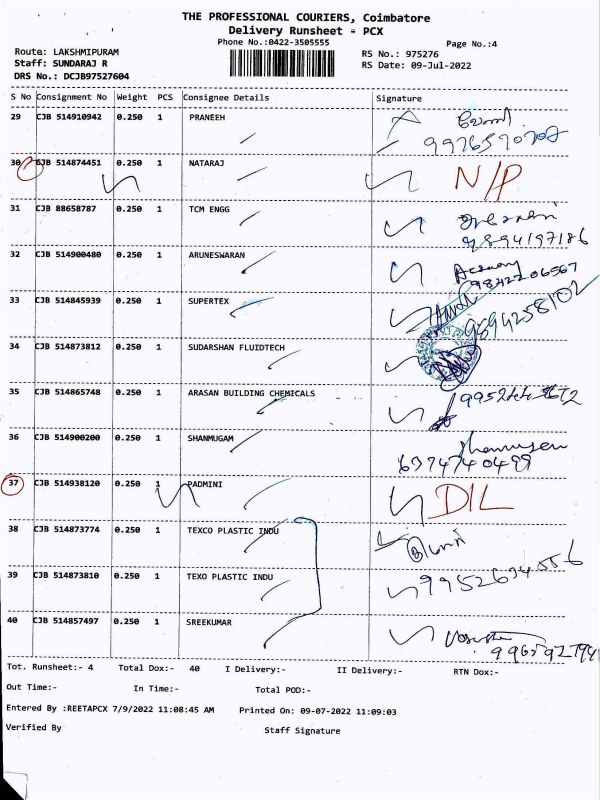 THE PROFESSIONAL COURIERS, Coimbatore
Delivery Runsheet - PCX
Phone No.:0422-3505555
Page No.:4
Route: LAKSHMIPURAM
RS No.: 975276
Staff: SUNDARAJ R
RS Date: 09-Jul-2022
DRS No.: DCJB97527604
S No Consignment No Weight PCS Consignee Details Signature
29 CJB 514910942 0.250 1 PRANEEH
9976570707
30 CJB 514874451 0.250 1 NATARAJ N/P
31 CJB 88658787 0.250 1 TCM ENGG
9894197186
32 CJB 514900480 0.250 1 ARUNESWARAN
9842206567
33 CJB 514845939 0.250 1 SUPERTEX
9894258102
34 CJB 514873812 0.250 1 SUDARSHAN FLUIDTECH
35 CJB 514865748 0.250 1 ARASAN BUILDING CHEMICALS
36 CJB 514900200 0.250 1 SHANMUGAM
6374740499
37 CJB 514938120 0.250 1 PADMINI DIL
38 CJB 514873774 0.250 1 TEXCO PLASTIC INDU
39 CJB 514873810 0.250 1 TEXO PLASTIC INDU
40 CJB 514857497 0.250 1 SREEKUMAR
Tot. Runsheet:- 4 Total Dox:- 40 I Delivery:- II Delivery:- RTN Dox:-
Out Time:- In Time:- Total POD:-
Entered By :REETAPCX 7/9/2022 11:08:45 AM Printed On: 09-07-2022 11:09:03
Verified By Staff Signature